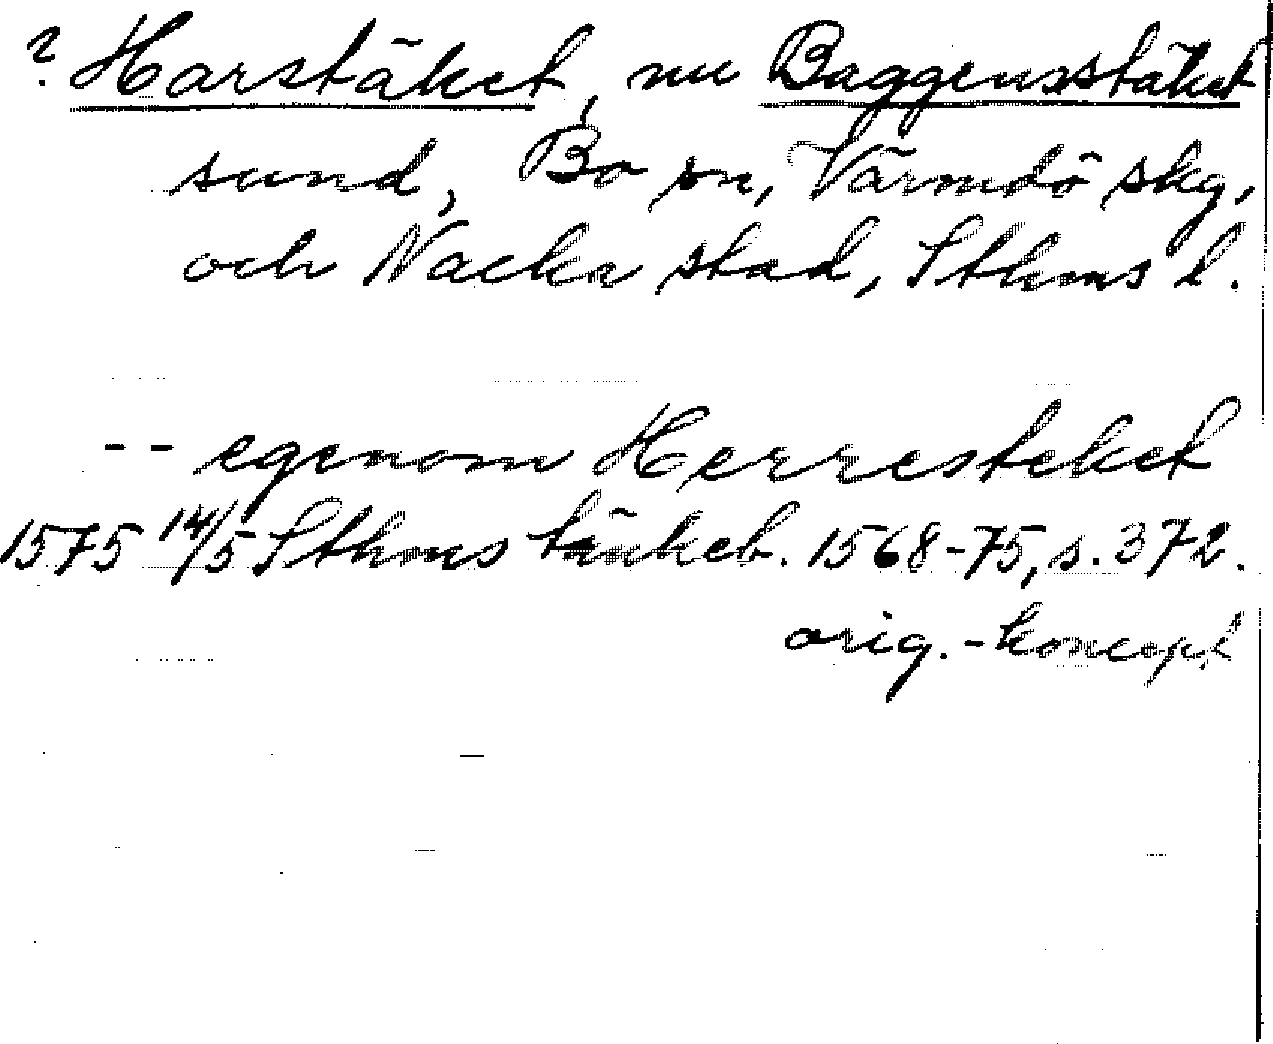 ? Harstäket, nu Baggensstäket
sund, Bo sn, Värmdö skg,
och Nacka stad, Sthms l.
-- egenom Herresteket
1575 14/5 Sthms tänkeb. 1568-75, s. 372.
orig.-koncept